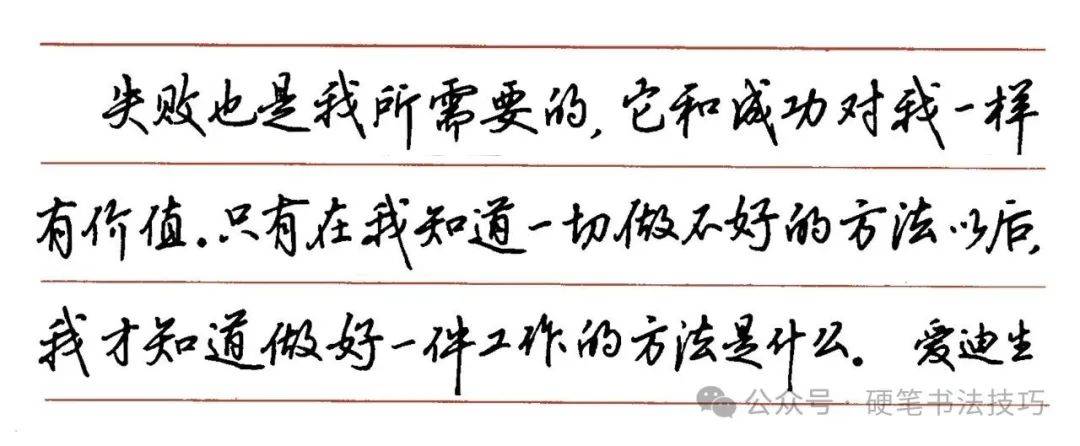 失败也是我所需要的,它和成功对我一样
有价值。只有在我知道一切做不好的方法以后,
我才知道做好一件工作的方法是什么。 爱迪生
公众号·硬笔书法技巧